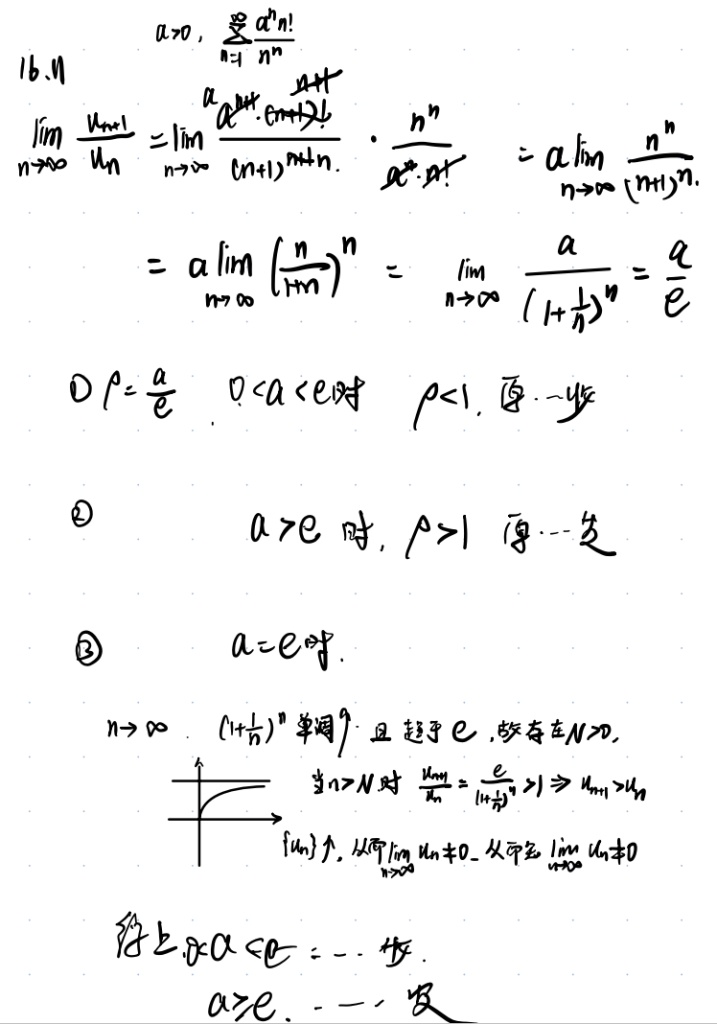 a>0, ∑_{n=1}^{∞} a^n n! / n^n
16.
lim_{n→∞} u_{n+1}/u_n = lim_{n→∞} a a^{n+1}·(n+1)! n+1 / (n+1)^{n+1 n}. · n^n / a^n·n! = a lim_{n→∞} n^n / (n+1)^n.
= a lim_{n→∞} (n/(1+n))^n = lim_{n→∞} a / (1+1/n)^n = a/e
① ρ = a/e . 0<a<e时 ρ<1. 原…收
② a>e 时, ρ>1 原…发
③ a=e时.
n→∞. (1+1/n)^n 单调↑且趋于e,故存在N>0,
当n>N时 u_{n+1}/u_n = e/(1+1/n)^n >1 ⇒ u_{n+1}>u_n
{u_n}↑, 从而lim_{n→∞} u_n≠0. 从而 lim_{n→∞} u_n≠0
综上.0<a<e :…收.
a≥e. …发